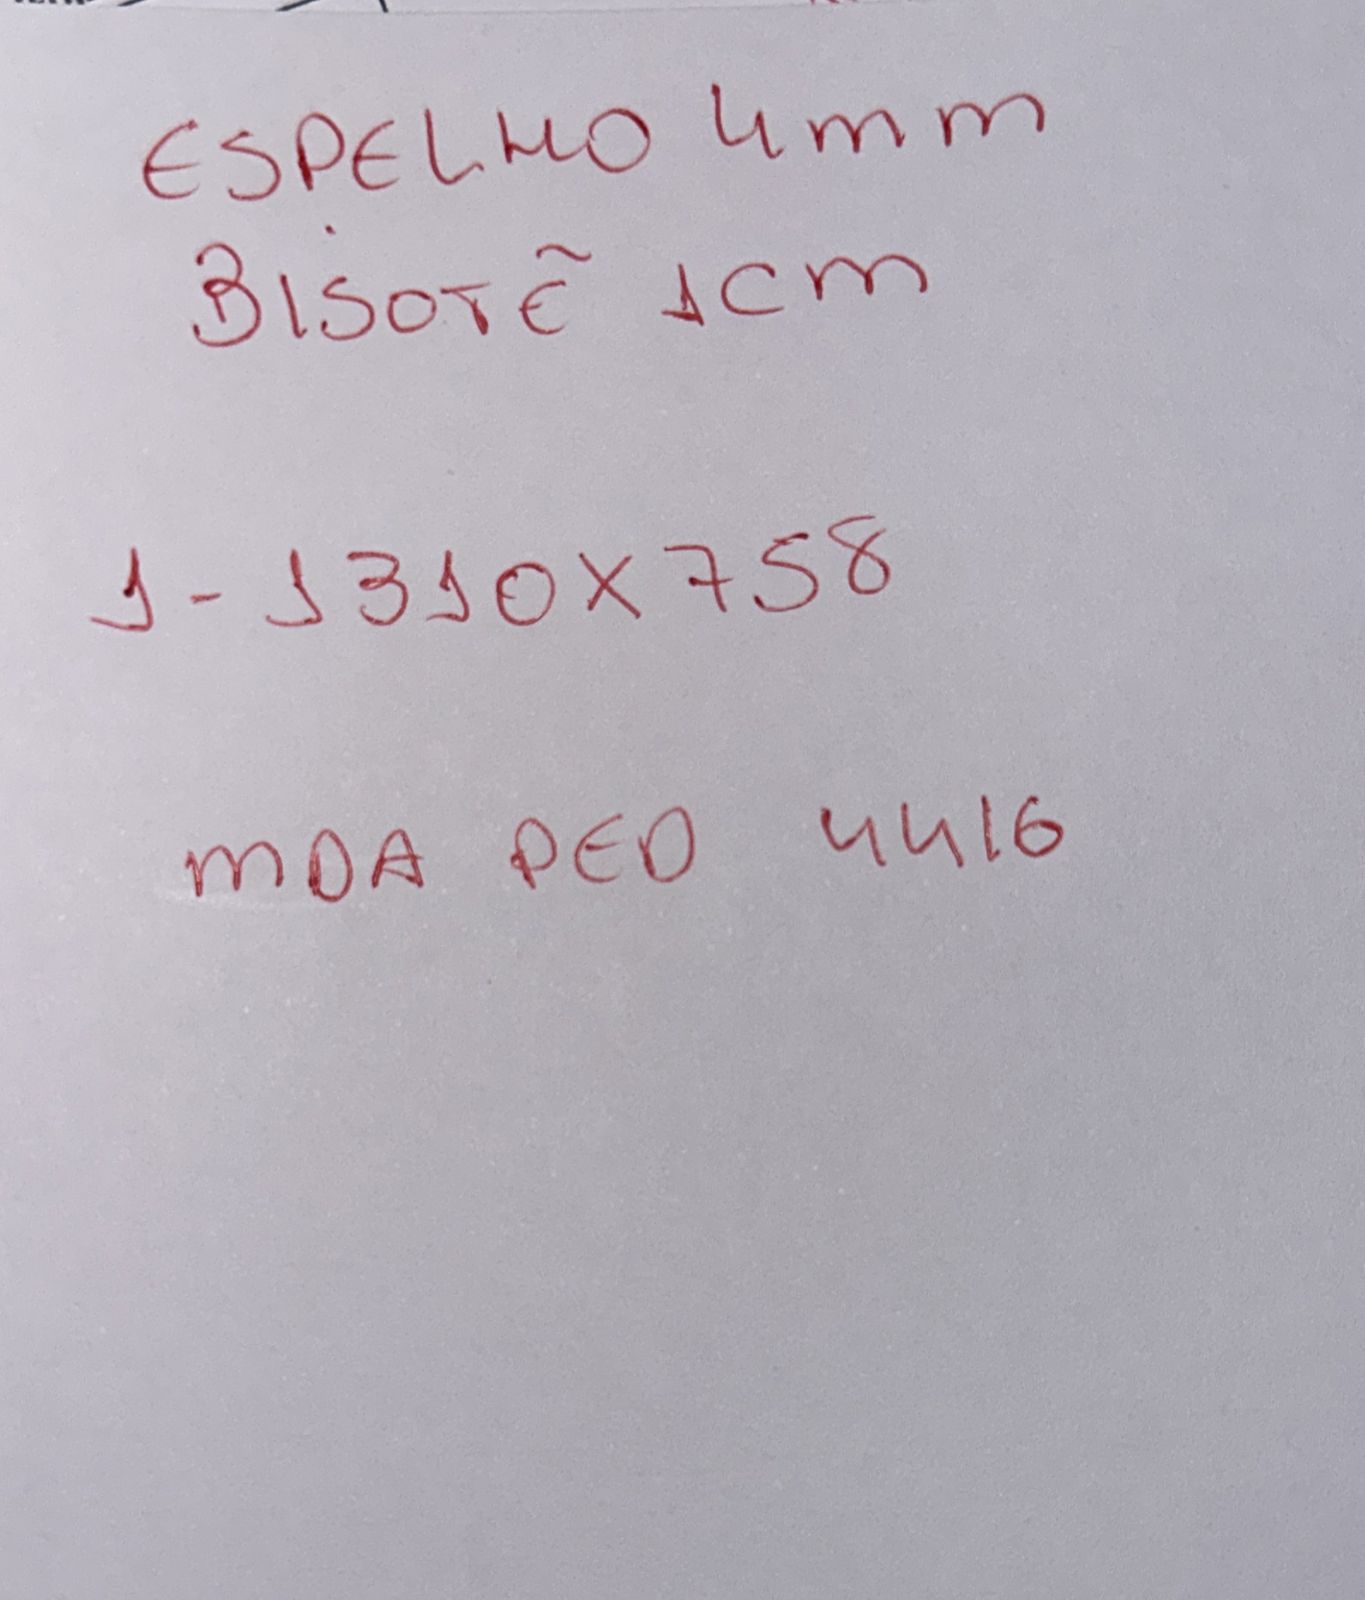 ESPELHO 4mm
BISOTẼ 1cm
1-1310X758
MDA PED 4416